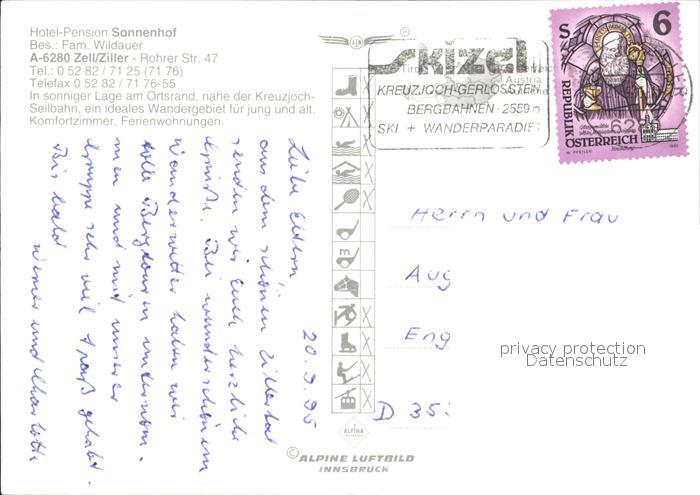 Hotel-Pension Sonnenhof
Bes.: Fam. Wildauer
A-6280 Zell/Ziller - Rohrer Str. 47
Tel.: 0 52 82 / 71 25 (71 76)
Telefax 0 52 82 / 71 76-55
In sonniger Lage am Ortsrand, nahe der Kreuzjoch-
Seilbahn, ein ideales Wandergebiet für jung und alt.
Komfortzimmer, Ferienwohnungen.
skizell
KREUZJOCH-GERLOSSTEIN
BERGBAHNEN · 2559 m
SKI + WANDERPARADIES
Austria
S 6
REPUBLIK
ÖSTERREICH
20.9.95
Liebe Eltern!
Aus dem schönen Zillertal
senden wir Euch herzliche
Grüße. Bei wunderschönem
Wanderwetter haben wir
tolle Bergtouren unternom-
men und mit unserer
Gruppe sehr viel Spaß gehabt.
Bis bald
Werner und Charlotte
Herrn und Frau
Aug
Eng
D 35
privacy protection
Datenschutz
ALPINA
© ALPINE LUFTBILD
INNSBRUCK